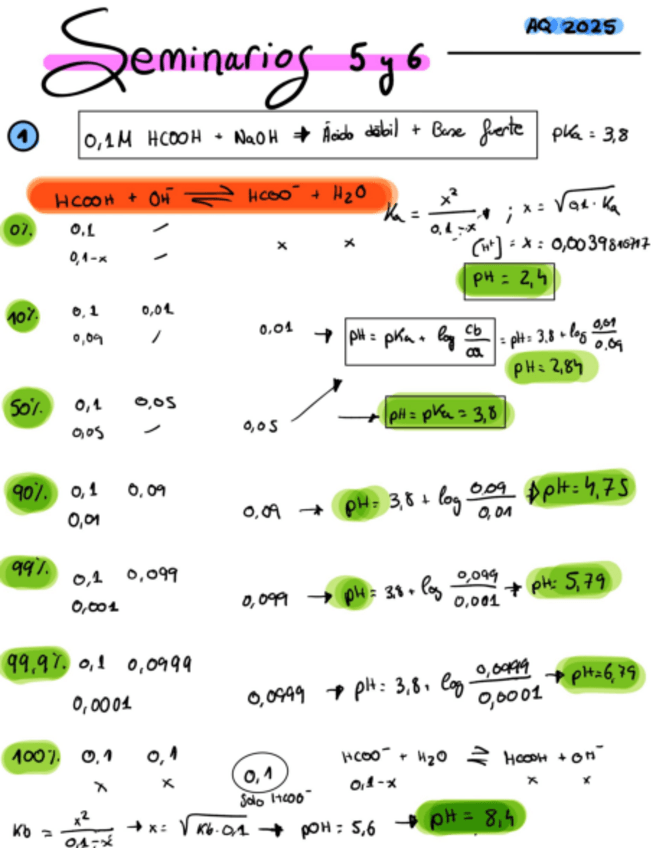 AQ 2025
Seminarios 5 y 6
1 0,1M HCOOH + NaOH → Ácido débil + Base fuerte pKa = 3,8
HCOOH + OH⁻ ⇌ HCOO⁻ + H2O Ka = x²/0,1-x ; x = √0,1·Ka
0% 0,1 –
0,1-x – x x [H⁺] = x = 0,0039810717
pH = 2,4
10% 0,1 0,01
0,09 / 0,01 → pH = pKa + log cb/ca = pH = 3,8 + log 0,01/0,09
pH = 2,84
50% 0,1 0,05
0,05 – 0,05 → pH = pKa = 3,8
90% 0,1 0,09
0,01 0,09 → pH = 3,8 + log 0,09/0,01 → pH = 4,75
99% 0,1 0,099
0,001 0,099 → pH = 3,8 + log 0,099/0,001 → pH = 5,79
99,9% 0,1 0,0999
0,0001 0,0999 → pH = 3,8 + log 0,0999/0,0001 → pH = 6,79
100% 0,1 0,1 HCOO⁻ + H2O ⇌ HCOOH + OH⁻
x x 0,1 0,1-x x x
Solo HCOO⁻
Kb = x²/0,1-x → x = √Kb·0,1 → pOH = 5,6 → pH = 8,4